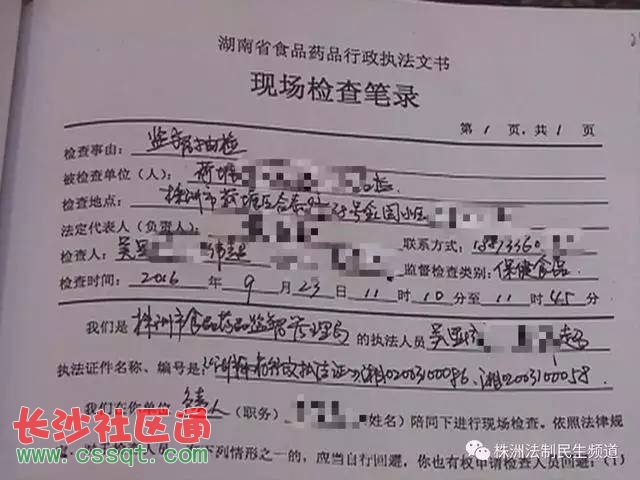 湖南省食品药品行政执法文书
现场检查笔录
第 1 页，共 1 页
检查事由：监督抽检
被检查单位（人）：荷塘
检查地点：株洲市荷塘区合泰 号金园小区
法定代表人（负责人）：
联系方式：
检查人：吴 监督检查类别：保健食品
检查时间：2016 年 9 月 23 日 11 时 10 分至 11 时 45 分
我们是 株洲市食品药品监督管理局 的执法人员 吴
执法证件名称、编号是：湖南省行政执法证 湘02003100086、湘02003100058.
我们在你单位 负责人 （职务） 姓名）陪同下进行现场检查。依照法律规
对于检查人员 下列情形之一的，应当自行回避，你也有权申请检查人员回避：（1）
长沙社区通
www.cssqt.com
株洲法制民生频道